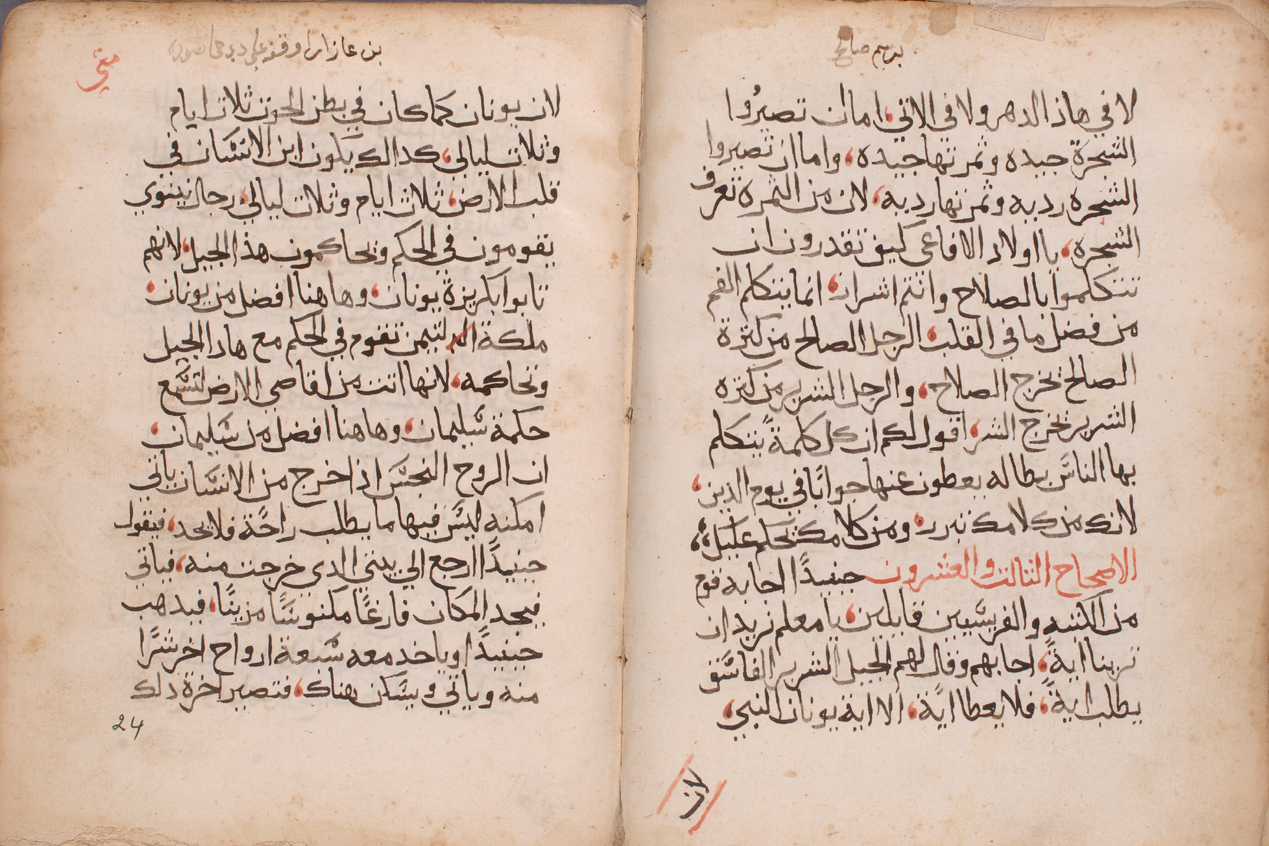 برسم صالح
لا في هاذا الدهر ولا في الاتي، اما ان تصيرُوا
الشجرة جيده وثمرتها جيده، واما ان تصيروا
الشجره رديه وثمرتها رديه، لان من الثمره تعرف
الشجره، يا اولاد الافاعى كيف تقدرون ان
تتكلموا بالصلاح وانتم اشرار، انما يتكلم الفم
من فضل ما في القلب، الرجل الصالح من كنزة
الصالح تخرج الصلاح، والرجل الشرير من كنزه
الشرير تخرج الشر، اقول لكم ان كل كلمة يتكلم
بها الناس بطاله يعطون عنها جوابًا في يوم الدين،
لانك من كلامك تبرر، ومن كلامك تحكم عليك،
الاصحاح الثالث والعشرون حينيدًا اجابه قوم
من الكتبه والفريسيين قايلين، يا معلم نريد ان
ترينا ايةً، اجابهم وقال لهم الجيل الشرير الفاسق
يطلب ايةً، فلا يعطا ايًة، الا اية يونان النبي،
بن عازار اوقفه على دير
متي
لان يونان كما كان في بطن الحوت ثلاث ايام
وثلاث ليالي، كدالك يكون ابن الانسان في
قلب الارض، ثلاث ايام وثلاث ليالي، رجال نينوي
يقومون في الحكم وتحاكمون هذ الجيل، لانهم
تابوا بكريزة يونان، وهاهنا افضل من يونان،
ملكة التيمن تقوم في الحكم مع هادا الجيل
وتحاكمه، لانها اتت من اقاصي الارض لتسمع
حكمة سليمان، وهاهنا افضل من سليمان،
ان الروح النجس اذا خرج من الانسان ياتي
امكنه ليس فيها ما يطلب راحًة فلا يجد، فيقول
حينيدًا ارجع الي بيتي الدى خرجت منه، فياتي
فيجد المكان فارغًا مكنوسًا مزينًا، فيدهب
حينيدًا وياخد معه سبعة ارواح اخر شرًا
منه وياتي ويسكن هناك، فتصير اخرة دلك
24